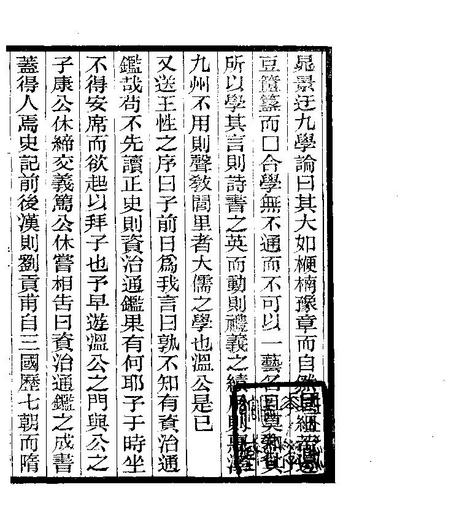 晁景迂九學論曰其大如楩楠豫章而自然
豆籩簋而口合學無不通而不可以一藝名曰
所以學其言則詩書之英而動則禮義之績
九州不用則聲敎閭里者大儒之學也溫公是已
又送王性之序曰子前日爲我言曰孰不知有資治通
鑑哉苟不先讀正史則資治通鑑果有何耶子于時坐
不得安席而欲起以拜子也予早遊溫公之門與公之
子康公休締交義篤公休嘗相告曰資治通鑑之成書
蓋得人焉史記前後漢則劉貢甫自三國歷七朝而隋